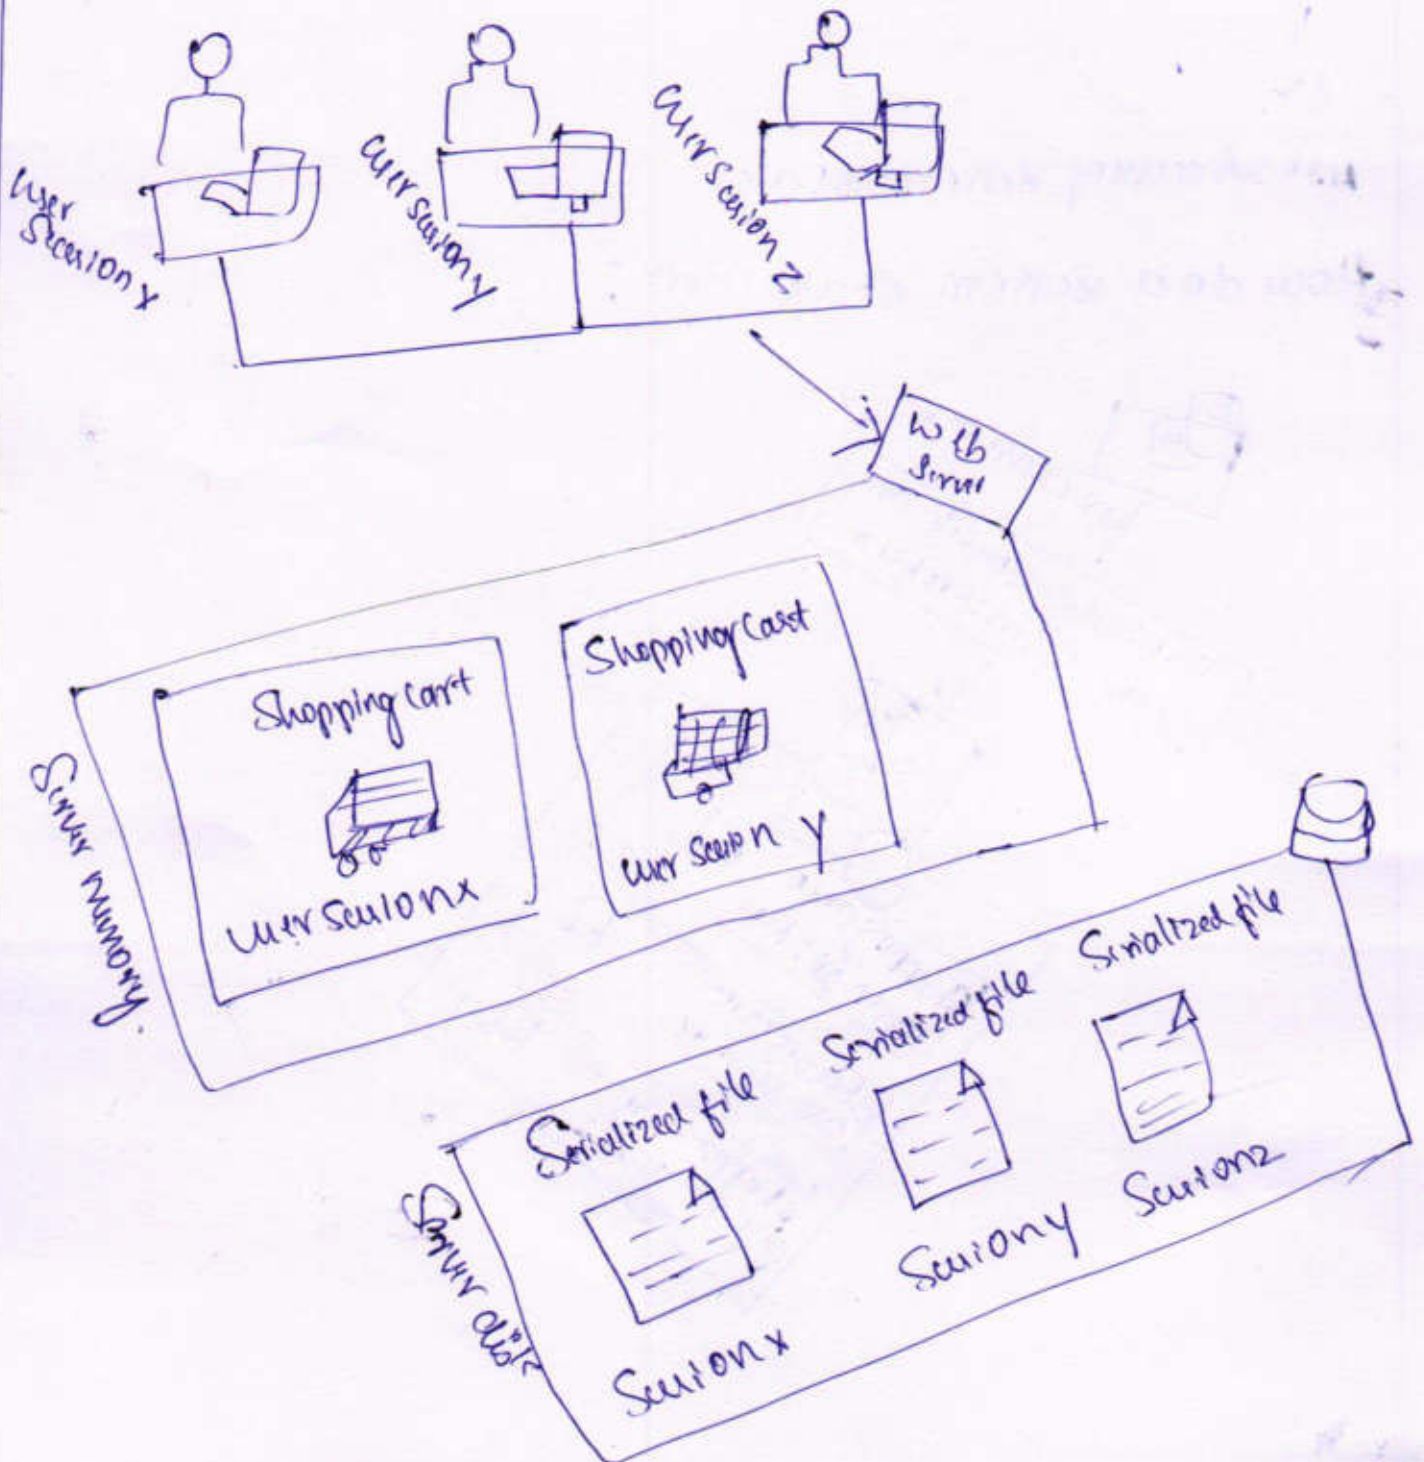 User
Session x
User session y
User session z
Web
Server
Shopping cart
User session x
Shopping cart
User session y
Server memory.
Serialized file
Session x
Serialized file
Session y
Serialized file
Session z
Server disk